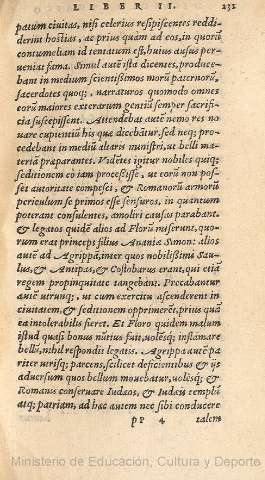 LIBER II. 232
patum ciuitas, nisi celerius resipiscentes reddi
derint hostias, ac prius quàm ad eos, in quorũ
contumeliam id tentatum est, huius ausus per
ueniat fama. Simul autẽ ista dicentes, produce
bant in medium scientissimos morũ paternorũ,
sacerdotes quoq;, narraturos quomodo omnes
eorũ maiores externarum gentiũ semper sacrifi
cia suscepissent. Attendebat autẽ nemo res no
uare cupientiũ his quæ dicebãtur, sed neq; pro-
cedebant in mediũ altaris ministri, ut belli mate
riã præparantes. Vidẽtes igitur nobiles quiq;
seditionem eò iam processisse, ut eorũ non pos
set autoritate compesci, & Romanorũ armorũ
periculum se primos esse sensuros, in quantum
poterant consulentes, amoliri causas parabant.
& legatos quidẽ alios ad Florũ miserunt, quo-
rum erat princeps filius Ananiæ Simon: alios
autẽ ad Agrippã, inter quos nobilissimi Sau-
lus, & Antipas, & Costobarus erant, qui etiã
regem propinquitate tangebant. Precabantur
autẽ utrunq;, ut cum exercitu ascenderent in
ciuitatem, & seditionem opprimerẽt, prius quã
ea intolerabilis fieret. Et Floro quidem malum
istud quasi bonus nũtius fuit, uolẽsq; inflamare
bellũ, nihil respondit legatis. Agrippa autẽ pa
riter utrisq; parcens, scilicet deficientibus & ijs
aduersum quos bellum mouebatur, uolẽsq; &
Romanis conseruare Iudæos, & Iudæis templũ
atq; patriam, ad hæc autem nec sibi conducere
PP 4 talem
Ministerio de Educación, Cultura y Deporte